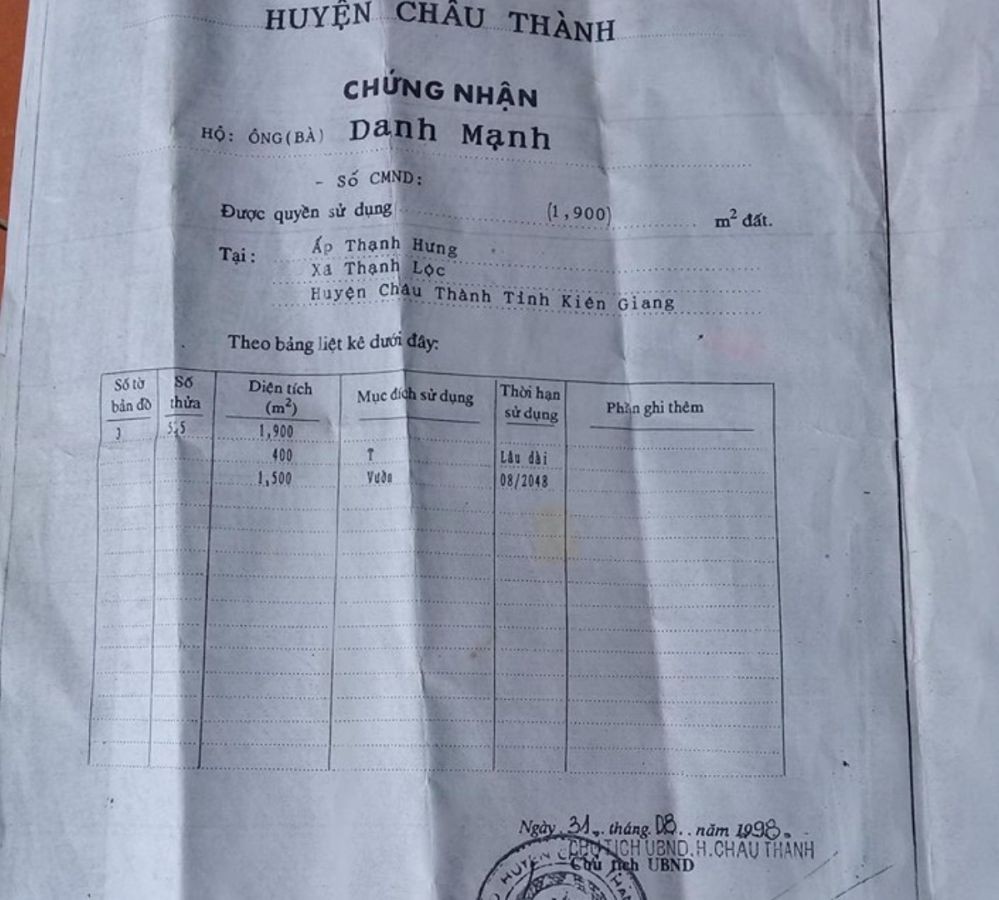 HUYỆN CHÂU THÀNH
CHỨNG NHẬN
HỘ: ÔNG(BÀ) Danh Mạnh
- Số CMND:
Được quyền sử dụng (1,900) m² đất.
Tại: Ấp Thạnh Hưng
Xã Thạnh Lộc
Huyện Châu Thành Tỉnh Kiên Giang
Theo bảng liệt kê dưới đây:
Số tờ bản đồ Số thửa Diện tích (m²) Mục đích sử dụng Thời hạn sử dụng Phần ghi thêm
1,900
400 T Lâu dài
1,500 Vườn 08/2048
Ngày 31 tháng 08 năm 1998.
CHỦ TỊCH UBND.H.CHÂU THÀNH
Chủ tịch UBND
HUYỆN